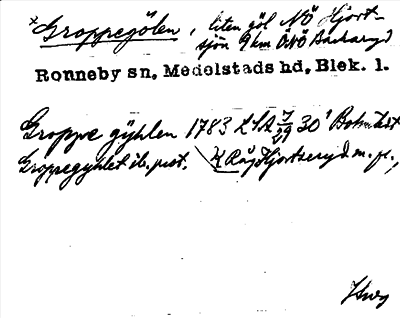 *Groppegölen, liten göl NÖ Hjort-
sjön 9 km ÖNÖ Backaryd
Ronneby sn, Medelstads hd, Blek. l.
Groppe gyhlen 1783 LSA 30
Groppegyhlet ib. prot. Rå Hjortseryd m. fl.,